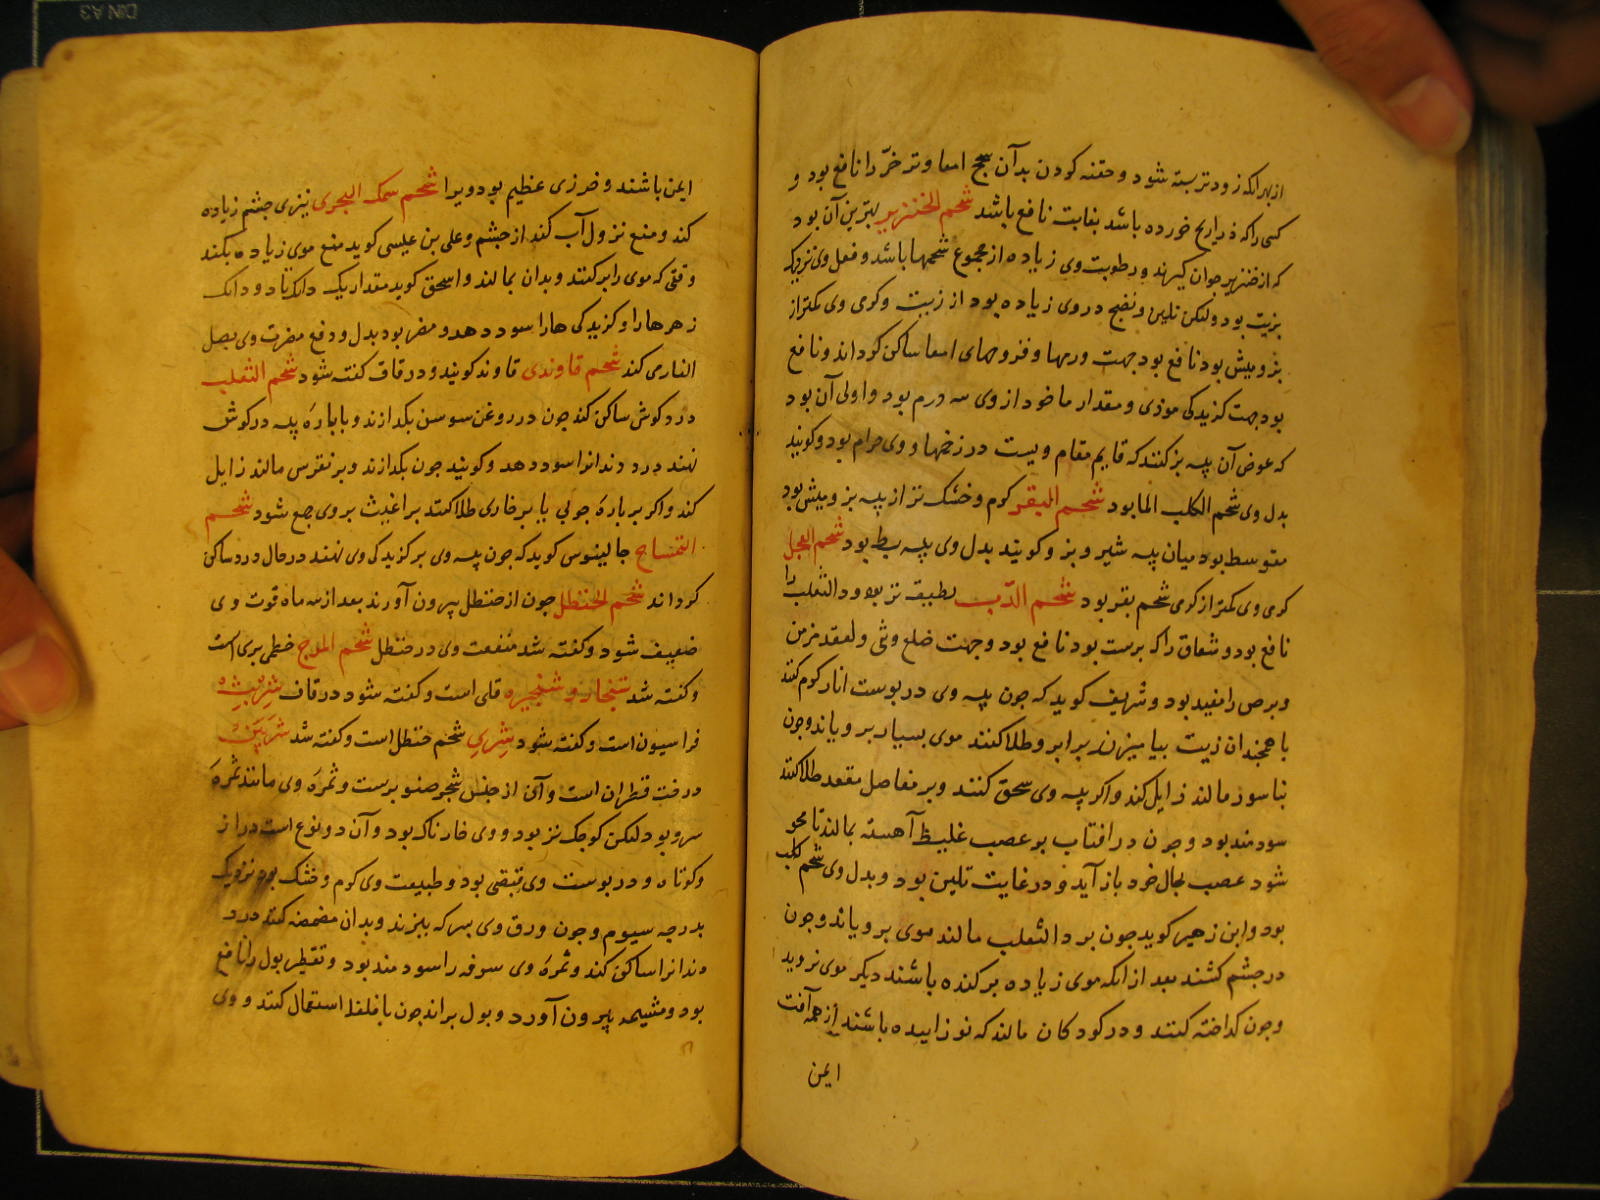 از بهر آنکه زودتر بسته شود و حقنه کردن بدان سحج امعا و تو خر را نافع بود و
کسی را که ذراریح خورده باشد بغایت نافع باشد شحم الخنزیر بهترین آن بود
که از خنزیر جوان کیرند و رطوبت وی زیاده از مجموع شحمها باشد و فعل وی نزدیک
بزیت بود ولیکن تلیین و نضج در وی زیاده بود از زیت و کرمی وی کمتر از
بز و میش بود نافع بود جهت ورمها و قروحهای امعا ساکن کرداند و نافع
بود جهت کزیدکی موذی و مقدار ماخوذ از وی سه درم بود و اولی آن بود
که عوض آن پیه بز کنند که قایم مقام ویست در زخمها و وی حرام بود و کویند
بدل وی شحم الکلب الما بود شحم البقر کرم و خشک تر از پیه بز و میش بود
متوسط بود میان پیه شیر و بز و کویند بدل وی پیه بط بود شحم العجل
کرمی وی کمتر از کرمی شحم بقر بود شحم الدب لطیف تر بود و داالثعلب را
نافع بود و شقاق را که برست بود نافع بود و جهت ضلع وثی و لعقد مزمن
و برص را مفید بود و شریف کوید که چون پیه وی در پوست انار کرم کنند
با همچندان زیت بیامیزند برابر و طلا کنند موی بسیار برویاند و چون
بناسور مالند زایل کند و اکر پیه وی سحق کنند و بر مفاصل مقعد طلا کنند
سودمند بود و چون در افتاب بر عصب غلیظ آهسته بمالند تا محو
شود عصب بحال خود باز آید و در غایت تلیین بود و بدل وی شحم کلب
بود و ابن زهیر کوید چون بر داالثعلب مالند موی برویاند و چون
در چشم کشند بعد از آنکه موی زیاده برکنده باشند دیکر موی نروید
و چون کداخته کنند و در کودکان مالند که نو زاییده باشند از همه آفت
ایمن
ایمن باشند و حرزی عظیم بود ویرا شحم سمک البحری تیزی چشم زیاده
کند و منع نزول آب کند از چشم و علی بن عیسی کوید منع موی زیاده بکند
وقتی که موی را برکنند و بدان بمالند و اسحق کوید مقدار یک دانک یا دو دانک
زهرها را و کزیدکی ها را سود دهد و مضر بود بدل و دفع مضرت وی بصل
النار می کند شحم قاوندی قاوند کویند و در قاف کفته شود شحم الثعلب
درد کوش ساکن کند چون در روغن سوسن بکدازند و با پاره پیه در کوش
نهند درد دندانرا سود دهد و کویند چون بکدازند و بر نقرس مالند زایل
کند و اکر بر پاره چوبی یا بر خاری طلا کنند براغیث بر وی جمع شود شحم
التمساح جالینوس کوید که چون پیه وی بر کزیدکی وی نهند در حال درد ساکن
کرداند شحم الحنظل چون از حنظل بیرون آورند بعد از سه ماه قوت وی
ضعیف شود و کفته شد منفعت وی در حنظل شحم المرج خطمی بری است
و کفته شد شنجار و شنجیره قلی است و کفته شود در قاف
فراسیون است و کفته شود شری شحم حنظل است و کفته شد شربین
درخت قطران است و آن از جنس شجر صنوبرست و ثمره وی مانند ثمره
سرو بود لیکن کوچک تر بود و وی خارناک بود و آن دو نوع است دراز
و کوتاه و در پوست وی قبضی بود و طبیعت وی کرم و خشک بود نزدیک
بدرجه سیوم و چون ورق وی بسرکه بپزند و بدان مضمضه کنند درد
دندانرا ساکن کند و ثمره وی سرفه را سودمند بود و تقطیر بول را نافع
بود و مشیمه بیرون آورد و بول براند چون با فلفل استعمال کنند و وی